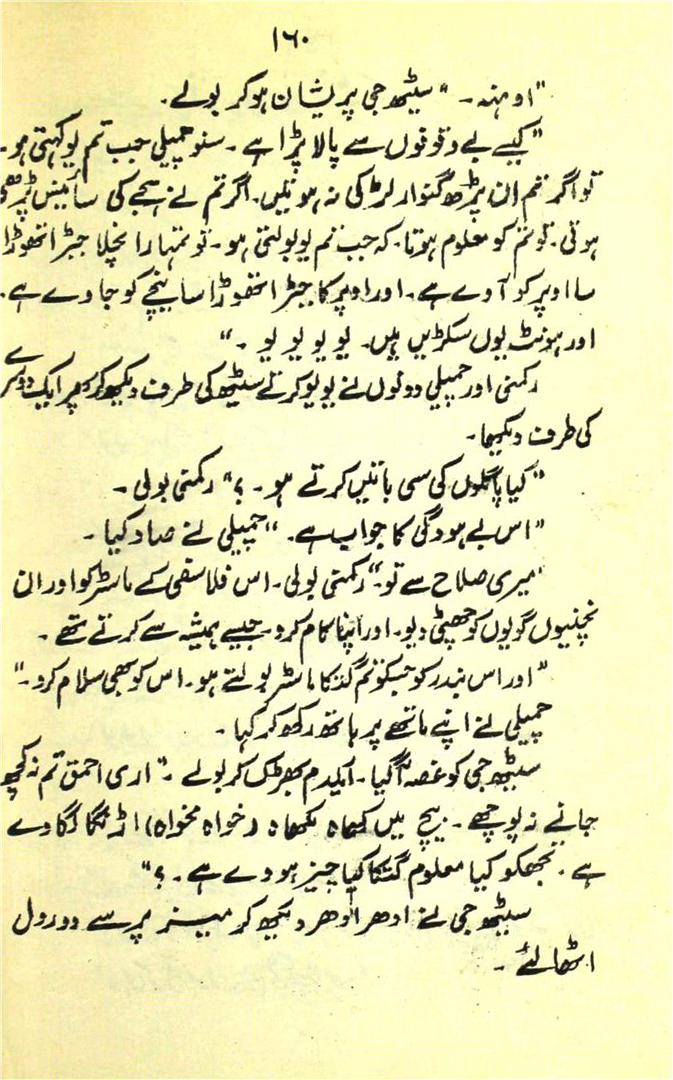 ۱۶۰
"اوہنہ۔ " سیٹھ جی پریشان ہو کر بولے۔
"کیسے بے وقوفوں سے پالا پڑا ہے۔ سنو چمپیلی جب تم یو کہتی ہو۔
تو اگر تم ان پڑھ گنوار لڑکی نہ ہوتیں۔ اگر تم نے ہجے کی سائینس پڑھی
ہوتی۔ تو تم کو معلوم ہوتا۔ کہ جب تم یو بولتی ہو۔ تو تمہارا نچلا جبڑا تھوڑا
سا اوپر کو آوے ہے۔ اور اوپر کا جبڑا تھوڑا سا نیچے کو جاوے ہے۔
اور ہونٹ یوں سکڑیں ہیں۔ یو یو یو یو ۔"
رکمنی اور چمپیلی دونوں نے یو یو کرتے سیٹھ کی طرف دیکھ کر پھر ایک دوسرے
کی طرف دیکھا۔
"کیا پاگلوں کی سی باتیں کرتے ہو۔ ؟" رکمنی بولی۔
"اس بے ہودگی کا جواب ہے۔ "چمپیلی نے صاد کیا۔
"میری صلاح سے تو۔" رکمنی بولی۔ اس فلاسفی کے ماسٹر کو اور ان
نچنیوں گویوں کو چھٹی دیو۔ اور اپنا کام کرو۔ جیسے ہمیشہ سے کرتے تھے۔
"اور اس بندر کو جسکو تم گتکا ماسٹر بولتے ہو۔ اس کو بھی سلام کرو۔"
چمپیلی نے اپنے ماتھے پر ہاتھ رکھ کر کہا۔
سیٹھ جی کو غصہ آگیا۔ ایکدم بھڑک کر بولے ۔" اری احمق تم نہ کچھ
جانے نہ پوچھے۔ بیچ میں کھاہ مکھاہ (خواہ مخواہ) اڑنگا لگاوے
ہے۔ تجھکو کیا معلوم گتکا کیا چیز ہووے ہے۔ ؟"
سیٹھ جی نے ادھر اُدھر دیکھ کر میز پر سے دو رول
اٹھا لئے۔